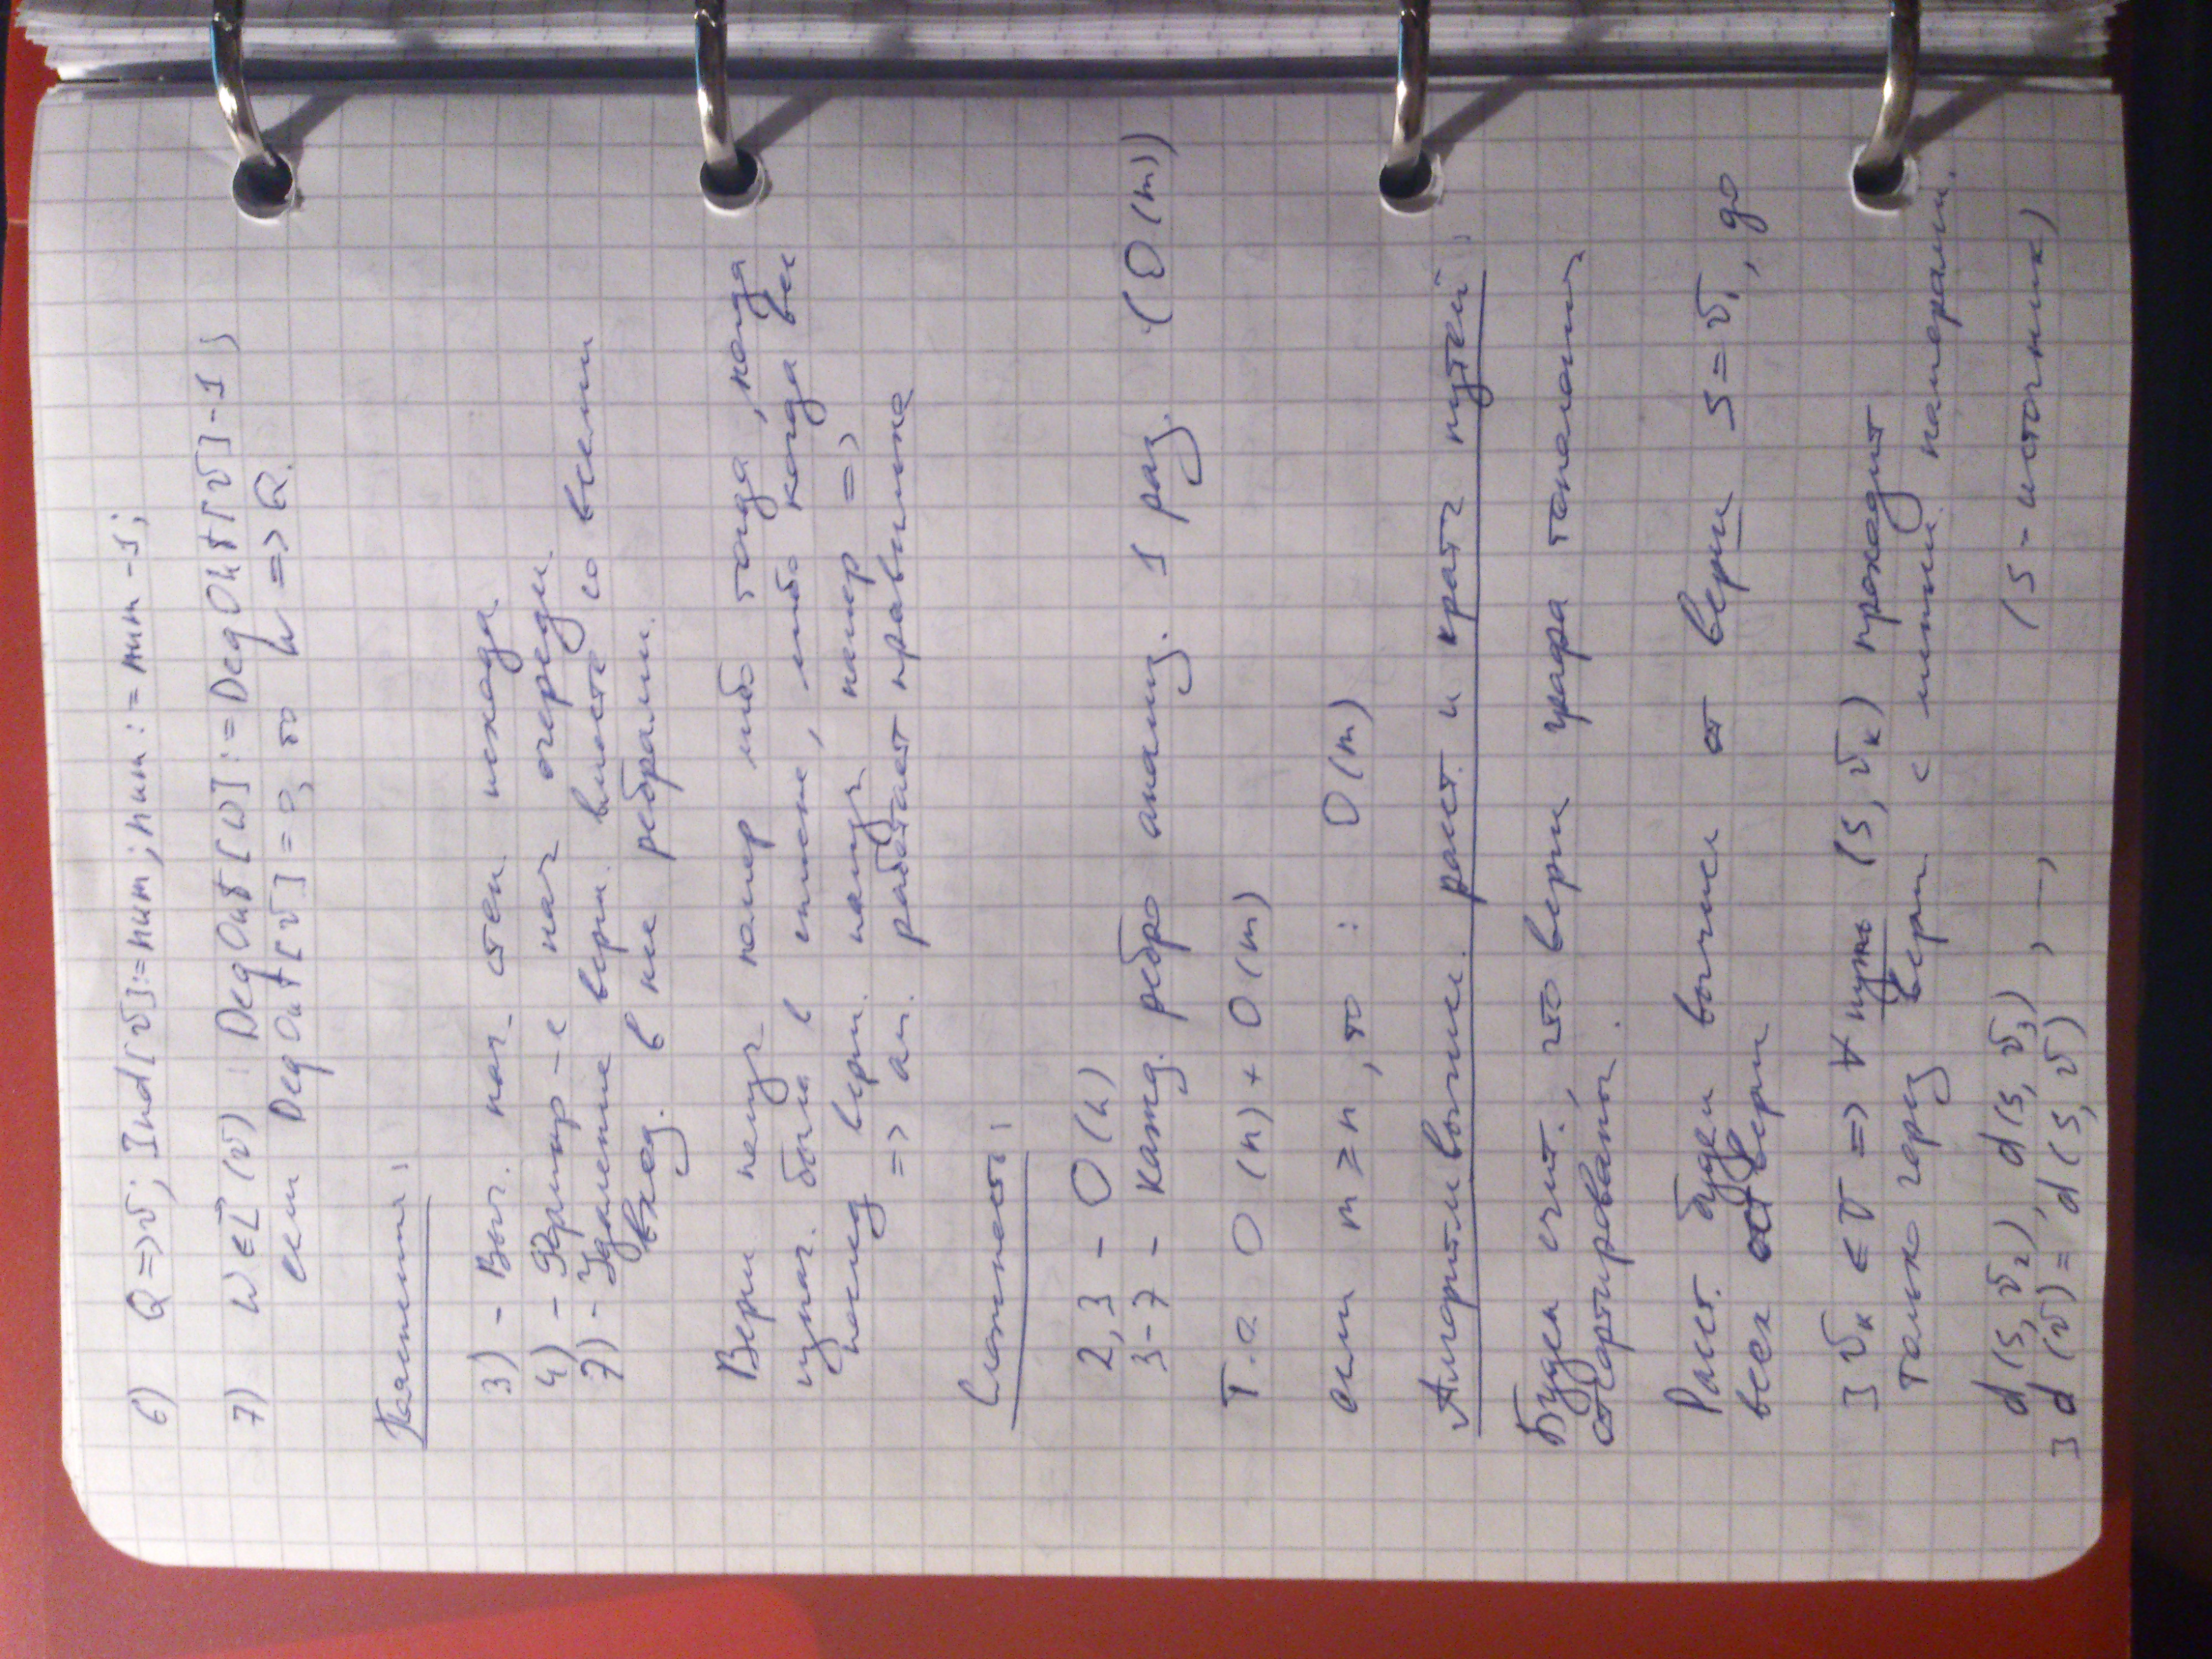 6) Q=>v; Ind[v]:=num; num:=num-1;
7) w∈L⃖(v) : DegOut[w]:=DegOut[v]-1;
если DegOut[v]=0, то w=>Q.
Пояснения:
3) - Выч. нач. степ. исхода.
4) - Формир-е нач очереди.
7) - Удаление верш. вместе со всеми
вход. в нее ребрами.
Верш. получ номер либо тогда, когда
изнач. была в , либо когда все
послед верш. получ номер =>
=> ал. работает правильно
Сложность:
2,3 - O(n)
3-7 - кажд. ребро анализ. 1 раз. (O(m))
Т.о O(n)+O(m)
если m≥n, то : O(m)
Алгоритм вычисл. раст. и кратч путей:
Будем счит., что верш графа топологич
отсортированы.
Раст. будем вычисл от верш s=v₁, до
всех ост верш
] vₖ ∈ V => ∀ путь (s,vₖ) проходит
только через верш с меньш. номерами.
d(s,v₂), d(s,v₃), ...,
] d(v)= d(s,v) (s-источник)